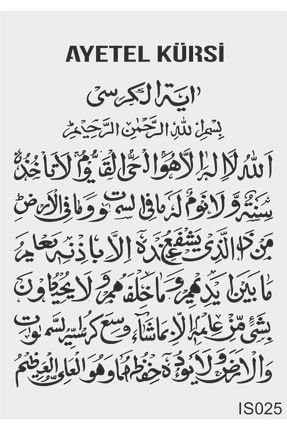 AYETEL KÜRSİ
اية الكرسى
بِسْمِ اللهِ الرَّحْمٰنِ الرَّحِيْمِ
اَللهُ لَا اِلٰهَ اِلَّا هُوَ اَلْحَىُّ الْقَيُّوْمُ لَا تَأْخُذُهُ
سِنَةٌ وَّلَا نَوْمٌ لَهُ مَا فِى السَّمٰوٰتِ وَمَا فِى الْاَرْضِ
مَنْ ذَا الَّذِىْ يَشْفَعُ عِنْدَهُ اِلَّا بِاِذْنِهٖ يَعْلَمُ
مَا بَيْنَ اَيْدِيْهِمْ وَمَا خَلْفَهُمْ وَلَا يُحِيْطُوْنَ
بِشَىْءٍ مِّنْ عِلْمِهٖ اِلَّا بِمَا شَاءَ وَسِعَ كُرْسِيُّهُ السَّمٰوٰتِ
وَالْاَرْضَ وَلَا يَؤُدُهُ حِفْظُهُمَا وَهُوَ الْعَلِىُّ الْعَظِيْمُ
IS025